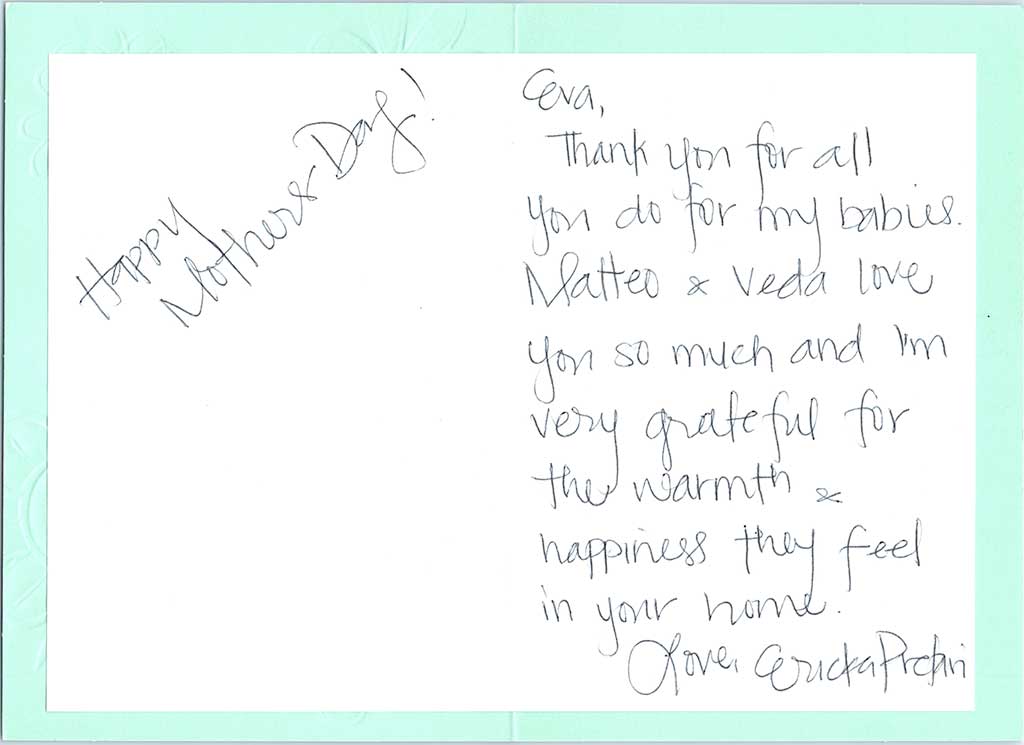 Happy
Mothers Day!
Eva,
Thank you for all
you do for my babies.
Matteo & Veda love
you so much and I'm
very grateful for
the warmth &
happiness they feel
in your home.
Love, Ericka